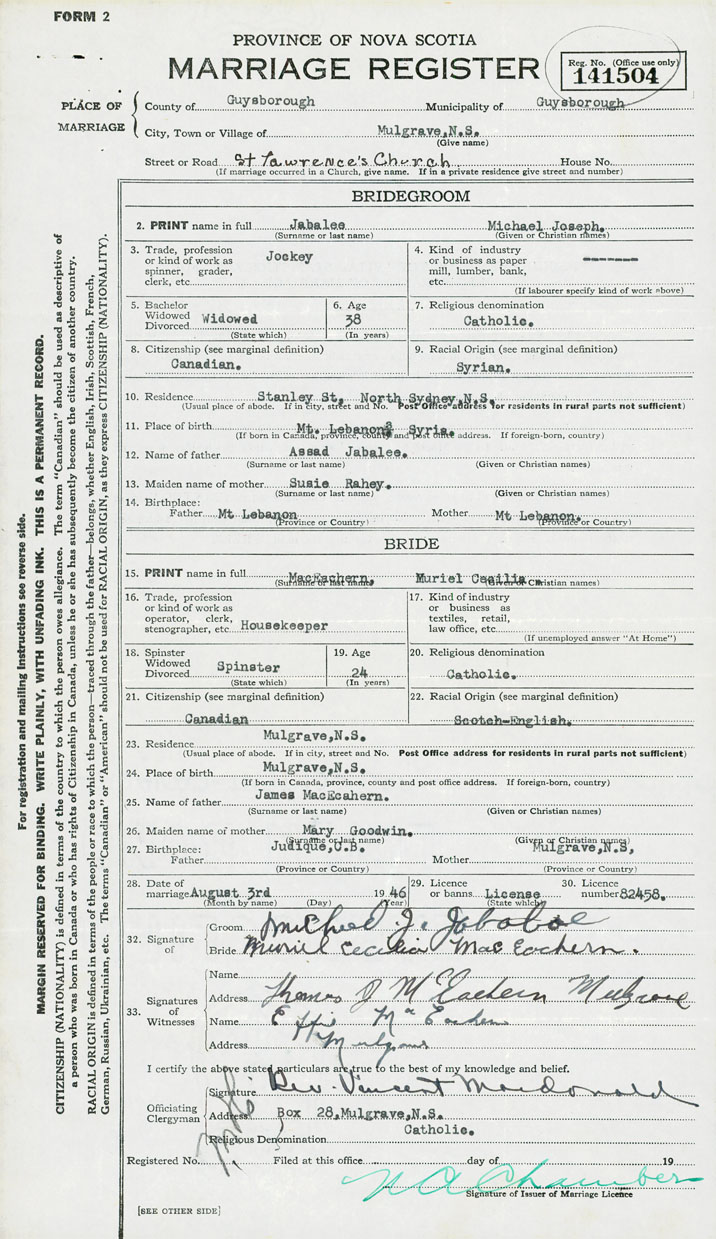 FORM 2
PROVINCE OF NOVA SCOTIA
MARRIAGE REGISTER
Reg. No. (Office use only)
141504
PLACE OF MARRIAGE
County of Guysborough Municipality of Guysborough
City, Town or Village of Mulgrave,N.S.
(Give name)
Street or Road St Lawrence's Church House No.
(If marriage occurred in a Church, give name. If in a private residence give street and number)
BRIDEGROOM
2. PRINT name in full Jabalee Michael Joseph.
(Surname or last name) (Given or Christian names)
3. Trade, profession or kind of work as spinner, grader, clerk, etc. Jockey
4. Kind of industry or business as paper mill, lumber, bank, etc. -------
(If labourer specify kind of work above)
5. Bachelor Widowed Divorced Widowed
(State which)
6. Age 38
(In years)
7. Religious denomination
Catholic.
8. Citizenship (see marginal definition)
Canadian.
9. Racial Origin (see marginal definition)
Syrian.
10. Residence Stanley St. North Sydney,N.S.
(Usual place of abode. If in city, street and No. Post Office address for residents in rural parts not sufficient)
11. Place of birth Mt. Lebanon, Syria.
(If born in Canada, province, county and post office address. If foreign-born, country)
12. Name of father Assad Jabalee.
(Surname or last name) (Given or Christian names)
13. Maiden name of mother Susie Rahey.
(Surname or last name) (Given or Christian names)
14. Birthplace:
Father Mt Lebanon Mother Mt Lebanon.
(Province or Country) (Province or Country)
BRIDE
15. PRINT name in full MacEachern, Muriel Cecilia
(Surname or last name) (Given or Christian names)
16. Trade, profession or kind of work as operator, clerk, stenographer, etc. Housekeeper
17. Kind of industry or business as textiles, retail, law office, etc.
(If unemployed answer "At Home")
18. Spinster Widowed Divorced Spinster
(State which)
19. Age 24
(In years)
20. Religious denomination
Catholic.
21. Citizenship (see marginal definition)
Canadian
22. Racial Origin (see marginal definition)
Scotch-English.
23. Residence Mulgrave,N.S.
(Usual place of abode. If in city, street and No. Post Office address for residents in rural parts not sufficient)
24. Place of birth Mulgrave,N.S.
(If born in Canada, province, county and post office address. If foreign-born, country)
25. Name of father James MacEcahern.
(Surname or last name) (Given or Christian names)
26. Maiden name of mother Mary Goodwin.
(Surname or last name) (Given or Christian names)
27. Birthplace: Judique,C.B. Mulgrave,N.S,
Father Mother
(Province or Country) (Province or Country)
28. Date of marriage August 3rd 19 46
(Month by name) (Day) (Year)
29. Licence or banns License
(State which)
30. Licence number 82458.
32. Signature of
Groom Michael J. Jabalee
Bride Muriel Cecilia MacEachern.
33. Signatures of Witnesses
Name
Address Thomas J McEachern Mulgrave
Name Effie McEachern
Address Mulgrave
I certify the above stated particulars are true to the best of my knowledge and belief.
Officiating Clergyman
Signature Rev. Vincent Macdonald
Address Box 28,Mulgrave,N.S.
Religious Denomination Catholic.
Registered No. Filed at this office day of 19
Signature of Issuer of Marriage Licence
[SEE OTHER SIDE]
For registration and mailing instructions see reverse side.
MARGIN RESERVED FOR BINDING. WRITE PLAINLY, WITH UNFADING INK. THIS IS A PERMANENT RECORD.
CITIZENSHIP (NATIONALITY) is defined in terms of the country to which the person owes allegiance. The term "Canadian" should be used as descriptive of
a person who was born in Canada or who has rights of Citizenship in Canada, unless he or she has subsequently become the citizen of another country.
RACIAL ORIGIN is defined in terms of the people or race to which the person—traced through the father—belongs, whether English, Irish, Scottish, French,
German, Russian, Ukrainian, etc. The terms "Canadian" or "American" should not be used for RACIAL ORIGIN, as they express CITIZENSHIP (NATIONALITY).